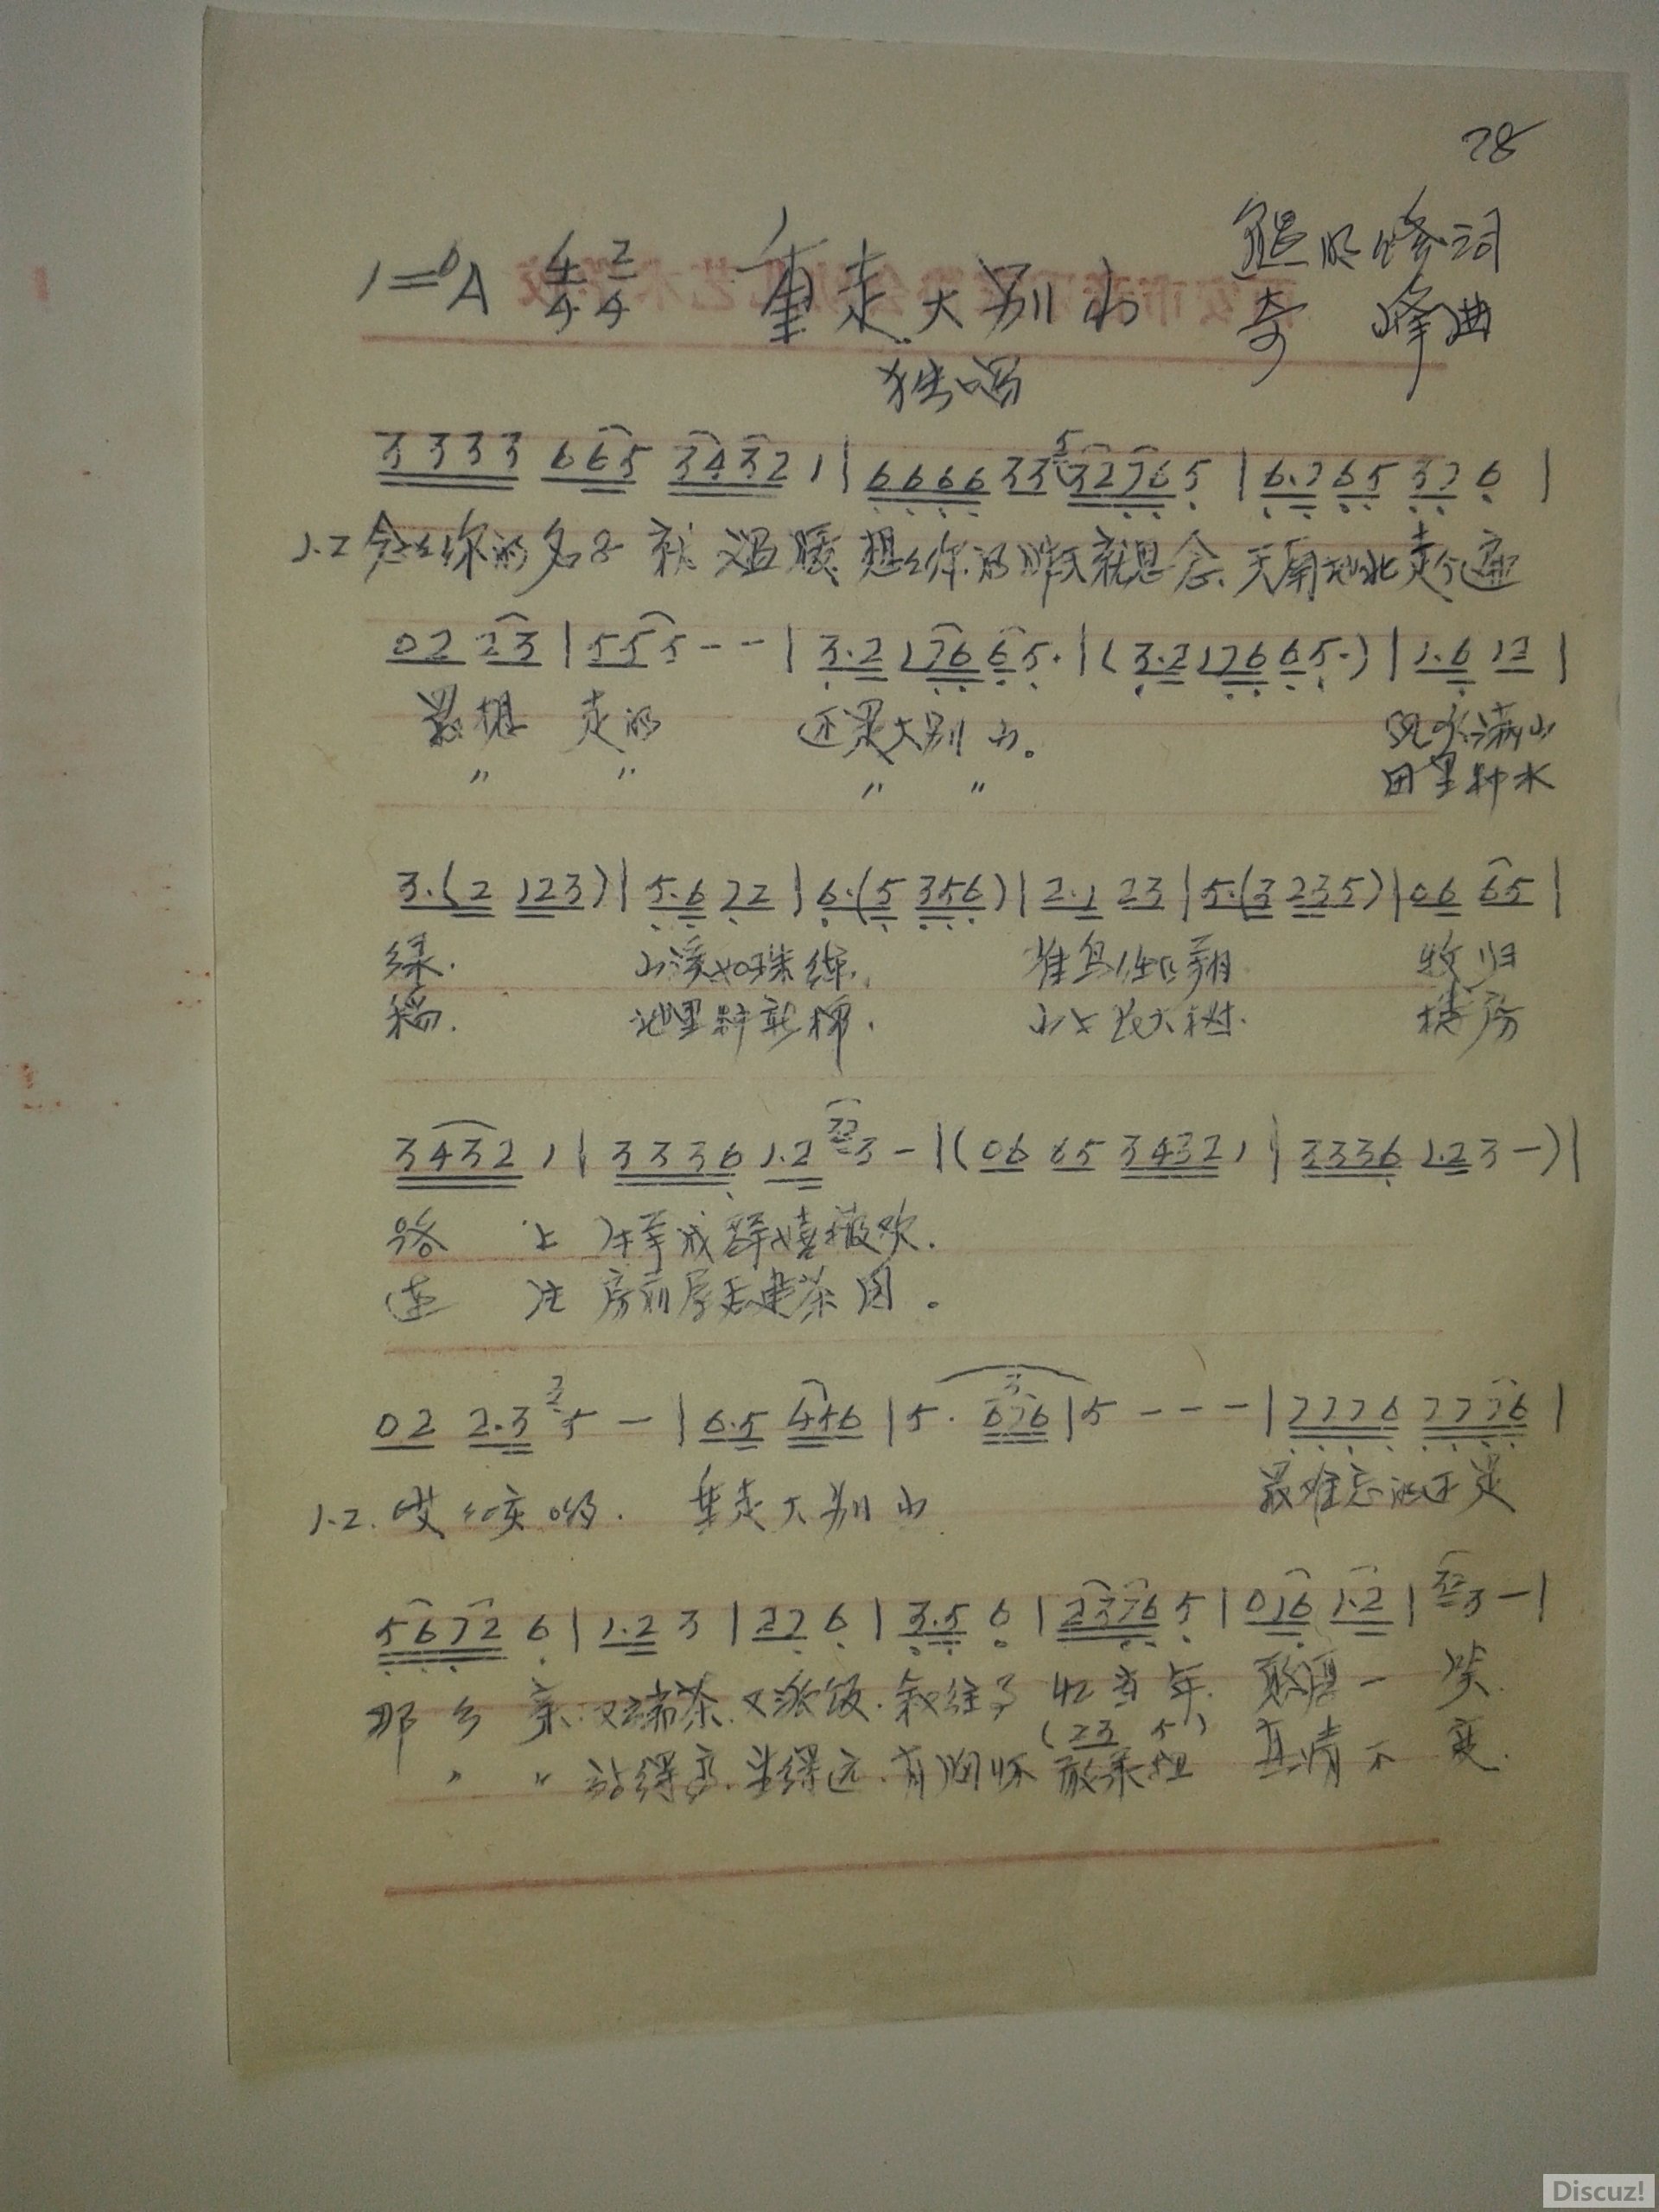 28
1=♭A 4/4 2/4 重走大别山 明修词
奇峰曲
独唱
3333 665 3432 1 | 6666 33 5 32765 | 6.765 376 |
1.2 念念你的名字就温暖 想想你的昨天就思念. 天南地北走个遍
02 23 | 555-- | 3.2 176 65. | (3.2 176 65.) | 1.6 12 |
最想 走的 还是大别山。 风吹满山
〃 〃 〃 〃 田里种水
3.(2 123) | 5.6 72 | 6.(5 356) | 2.1 23 | 5.(3 235) | 06 65 |
绿. 山溪如珠练. 鸟 翔. 牧归
稻. 地里种 棉. 山上长大树. 楼房
3432 1 | 3336 1.2 32 3 - | (06 65 3432 1 | 3336 1.2 3 -) |
路 上 牛羊成群嬉撒欢.
连 注 房前屋后建茶园。
02 2.3 2 5 - | 6.5 456 | 5. 3 676 | 5 - - - | 7776 7776 |
1.2. 哎 咳哟. 重走大别山 最难忘的还是
5672 6 | 1.2 3 | 27 6 | 3.5 6 | 2376 5 | 016 1.2 | 32 3 - |
那 乡 亲. 又端茶. 又派饭. 叙往事 忆当年. 憨厚一 笑.
(23 5)
〃 〃 站得高. 望得远. 有胸怀 敢承担 真情不 变.
Discuz!